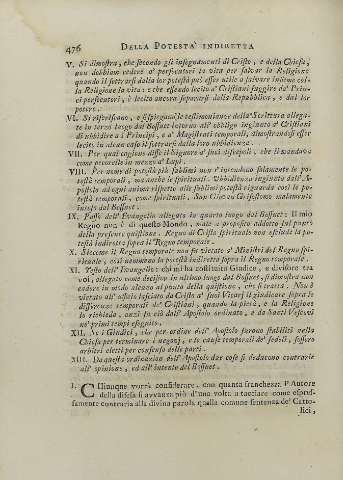 476 DELLA POTESTA' INDIRETTA
V. Si dimostra, che secondo gli insegnamenti di Cristo, e della Chiesa,
non debbiam cedere a' persecutori la vita per salvar la Religione
quando il sottrarsi dalla lor potestà può esser utile a salvare insieme col-
la Religione la vita: e che essendo lecito a' Cristiani fuggire da' Prin-
cipi persecutori, è lecito ancora separarsi dalla Repubblica, e dal lor
potere.
VI. Si ristrisano, e si spiegano le testimonianze della Scrittura allega-
te in terzo luogo dal Bossuet intorno all' obbligo ingiunto a' Cristiani
di ubbidire a i Principi, e a' Magistrati temporali, dimostrandosi esser
lecito in alcun caso il sottrarsi dalla loro ubbidienza.
VII. Per qual cagione disse il Signore a' suoi discepoli, che li mandava
come pecorelle in mezzo a' Lupi.
VIII. Per nome di potestà più sublimi non s' intendono solamente le po-
testà temporali, ma anche le spirituali. Ubbidienza ordinata dall' A-
postolo ad ogni anima rispetto alle sublimi potestà riguarda così le po-
testà temporali, come le spirituali. San Gio: Crisostomo malamente
inteso dal Bossuet.
IX. Passo dell' Evangelio allegato in quarto luogo dal Bossuet: Il mio
Regno non è di questo Mondo, male a proposito addotto sul punto
della presente quistione. Regno di Cristo spirituale non esclude la po-
testà indiretta sopra il Regno temporale.
X. Siccome il Regno temporale non fu vietato a' Ministri del Regno spi-
rituale, così nemmeno la potestà indiretta sopra il Regno temporale.
XI. Testo dell' Evangelio: chi mi ha costituito Giudice, e divisore tra
voi, allegato come decisivo in ultimo luogo dal Bossuet, si dimostra non
cadere in modo alcuno al punto della quistione, che si tratta. Non è
vietato all' uffizio lasciato da Cristo a' suoi Vicarj il giudicare sopra le
differenze temporali de' Cristiani, quando la pietà, e la Religione
lo richieda, anzi fu ciò dall' Apostolo ordinato, e da Santi Vescovi
ne' primi tempi eseguito.
XII. Se i Giudici, che per ordine dell' Apostolo furono stabiliti nella
Chiesa per terminare i negozj, e le cause temporali de' fedeli, fossero
arbitri eletti per consenso delle parti.
XIII. Da questa ordinazione dell' Apostolo due cose si deducono contrarie
all' opinione, ed all' intento del Bossuet.
I. CHiunque vorrà considerare, con quanta franchezza l' Autore
della difesa si avvanza più d' una volta a tacciare come espres-
samente contraria alla divina parola quella comune sentenza de' Catto-
lici,